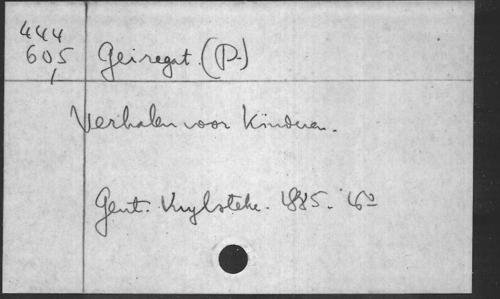 444
605 Geiregat. (P.)
Verhalen voor Kinderen.
Gent. Vuylsteke. 1885. 16º